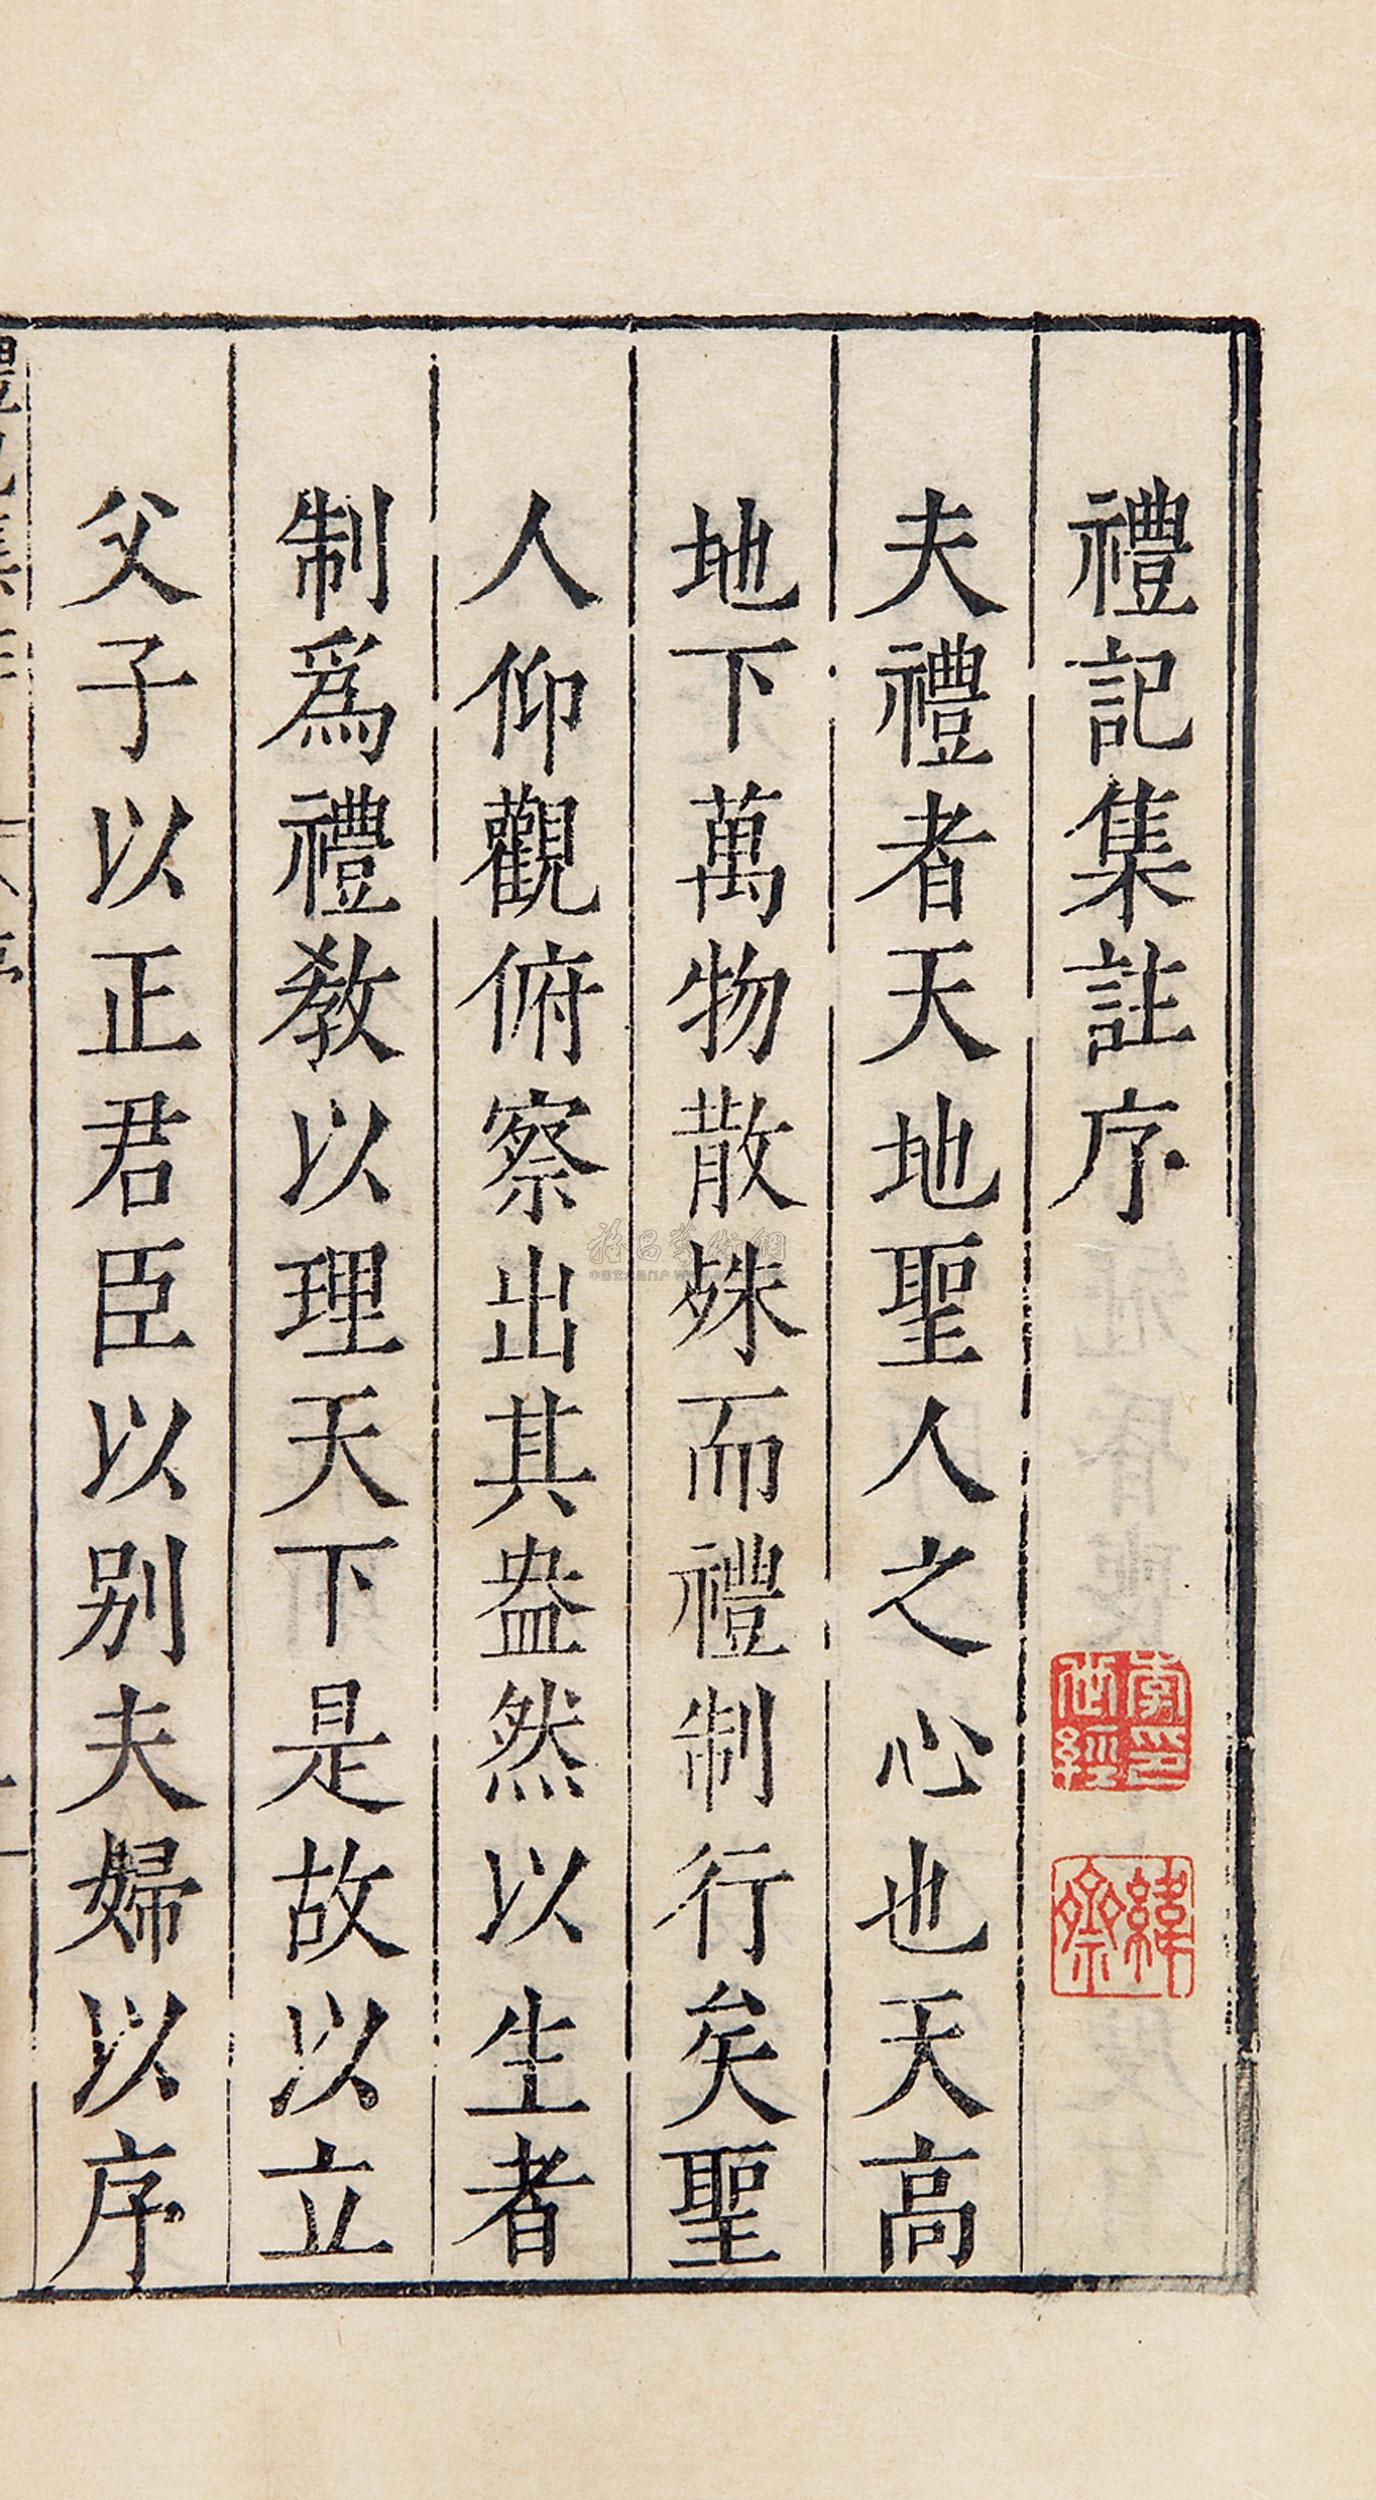 禮記集註序
夫禮者天地聖人之心也天高
地下萬物散姝而禮制行矣聖
人仰觀俯察出其盎然以生者
制爲禮敎以理天下是故以立
父子以正君臣以别夫婦以序
緯齋